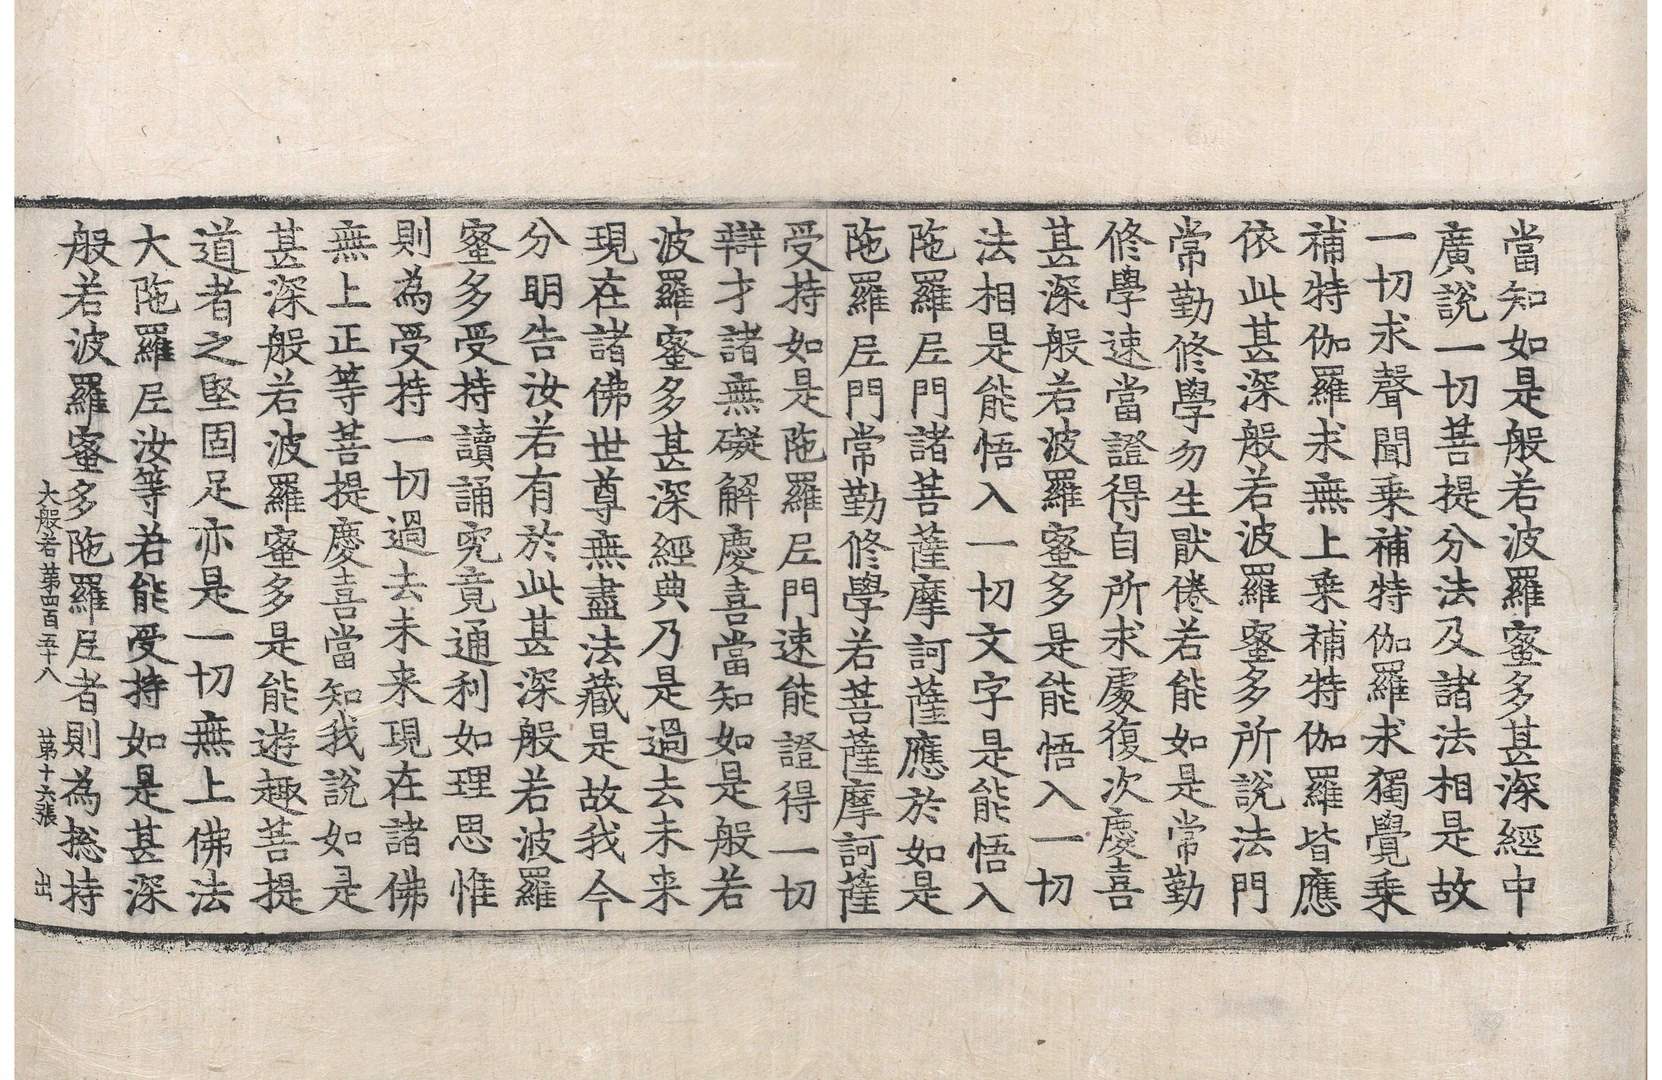 當知如是般若波羅蜜多甚深經中
廣說一切菩提分法及諸法相是故
一切求聲聞乗補特伽羅求獨覺乗
補特伽羅求無上乗補特伽羅皆應
依此甚深般若波羅蜜多所說法門
常勤修學勿生猒倦若能如是常勤
修學速當證得自所求處復次慶喜
甚深般若波羅蜜多是能悟入一切
法相是能悟入一切文字是能悟入
陁羅尼門諸菩薩摩訶薩應於如是
陁羅尼門常勤修學若菩薩摩訶薩
受持如是陁羅尼門速能證得一切
辯才諸無礙解慶喜當知如是般若
波羅蜜多甚深經典乃是過去未来
現在諸佛世尊無盡法藏是故我今
分明告汝若有於此甚深般若波羅
蜜多受持讀誦究竟通利如理思惟
則為受持一切過去未来現在諸佛
無上正等菩提慶喜當知我說如是
甚深般若波羅蜜多是能遊趣菩提
道者之堅固足亦是一切無上佛法
大陁羅尼汝等若能受持如是甚深
般若波羅蜜多陁羅尼者則為捴持
大般若第四百五十八 第十六張 出